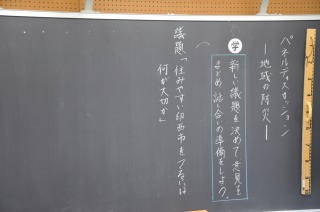 パネルディスカッション
―地域の防災―
学
新しい議題を決めて意見を
まとめ、話し合いの準備をしよう。
議題「住みやすい印西市をつくるには
何が大切か」